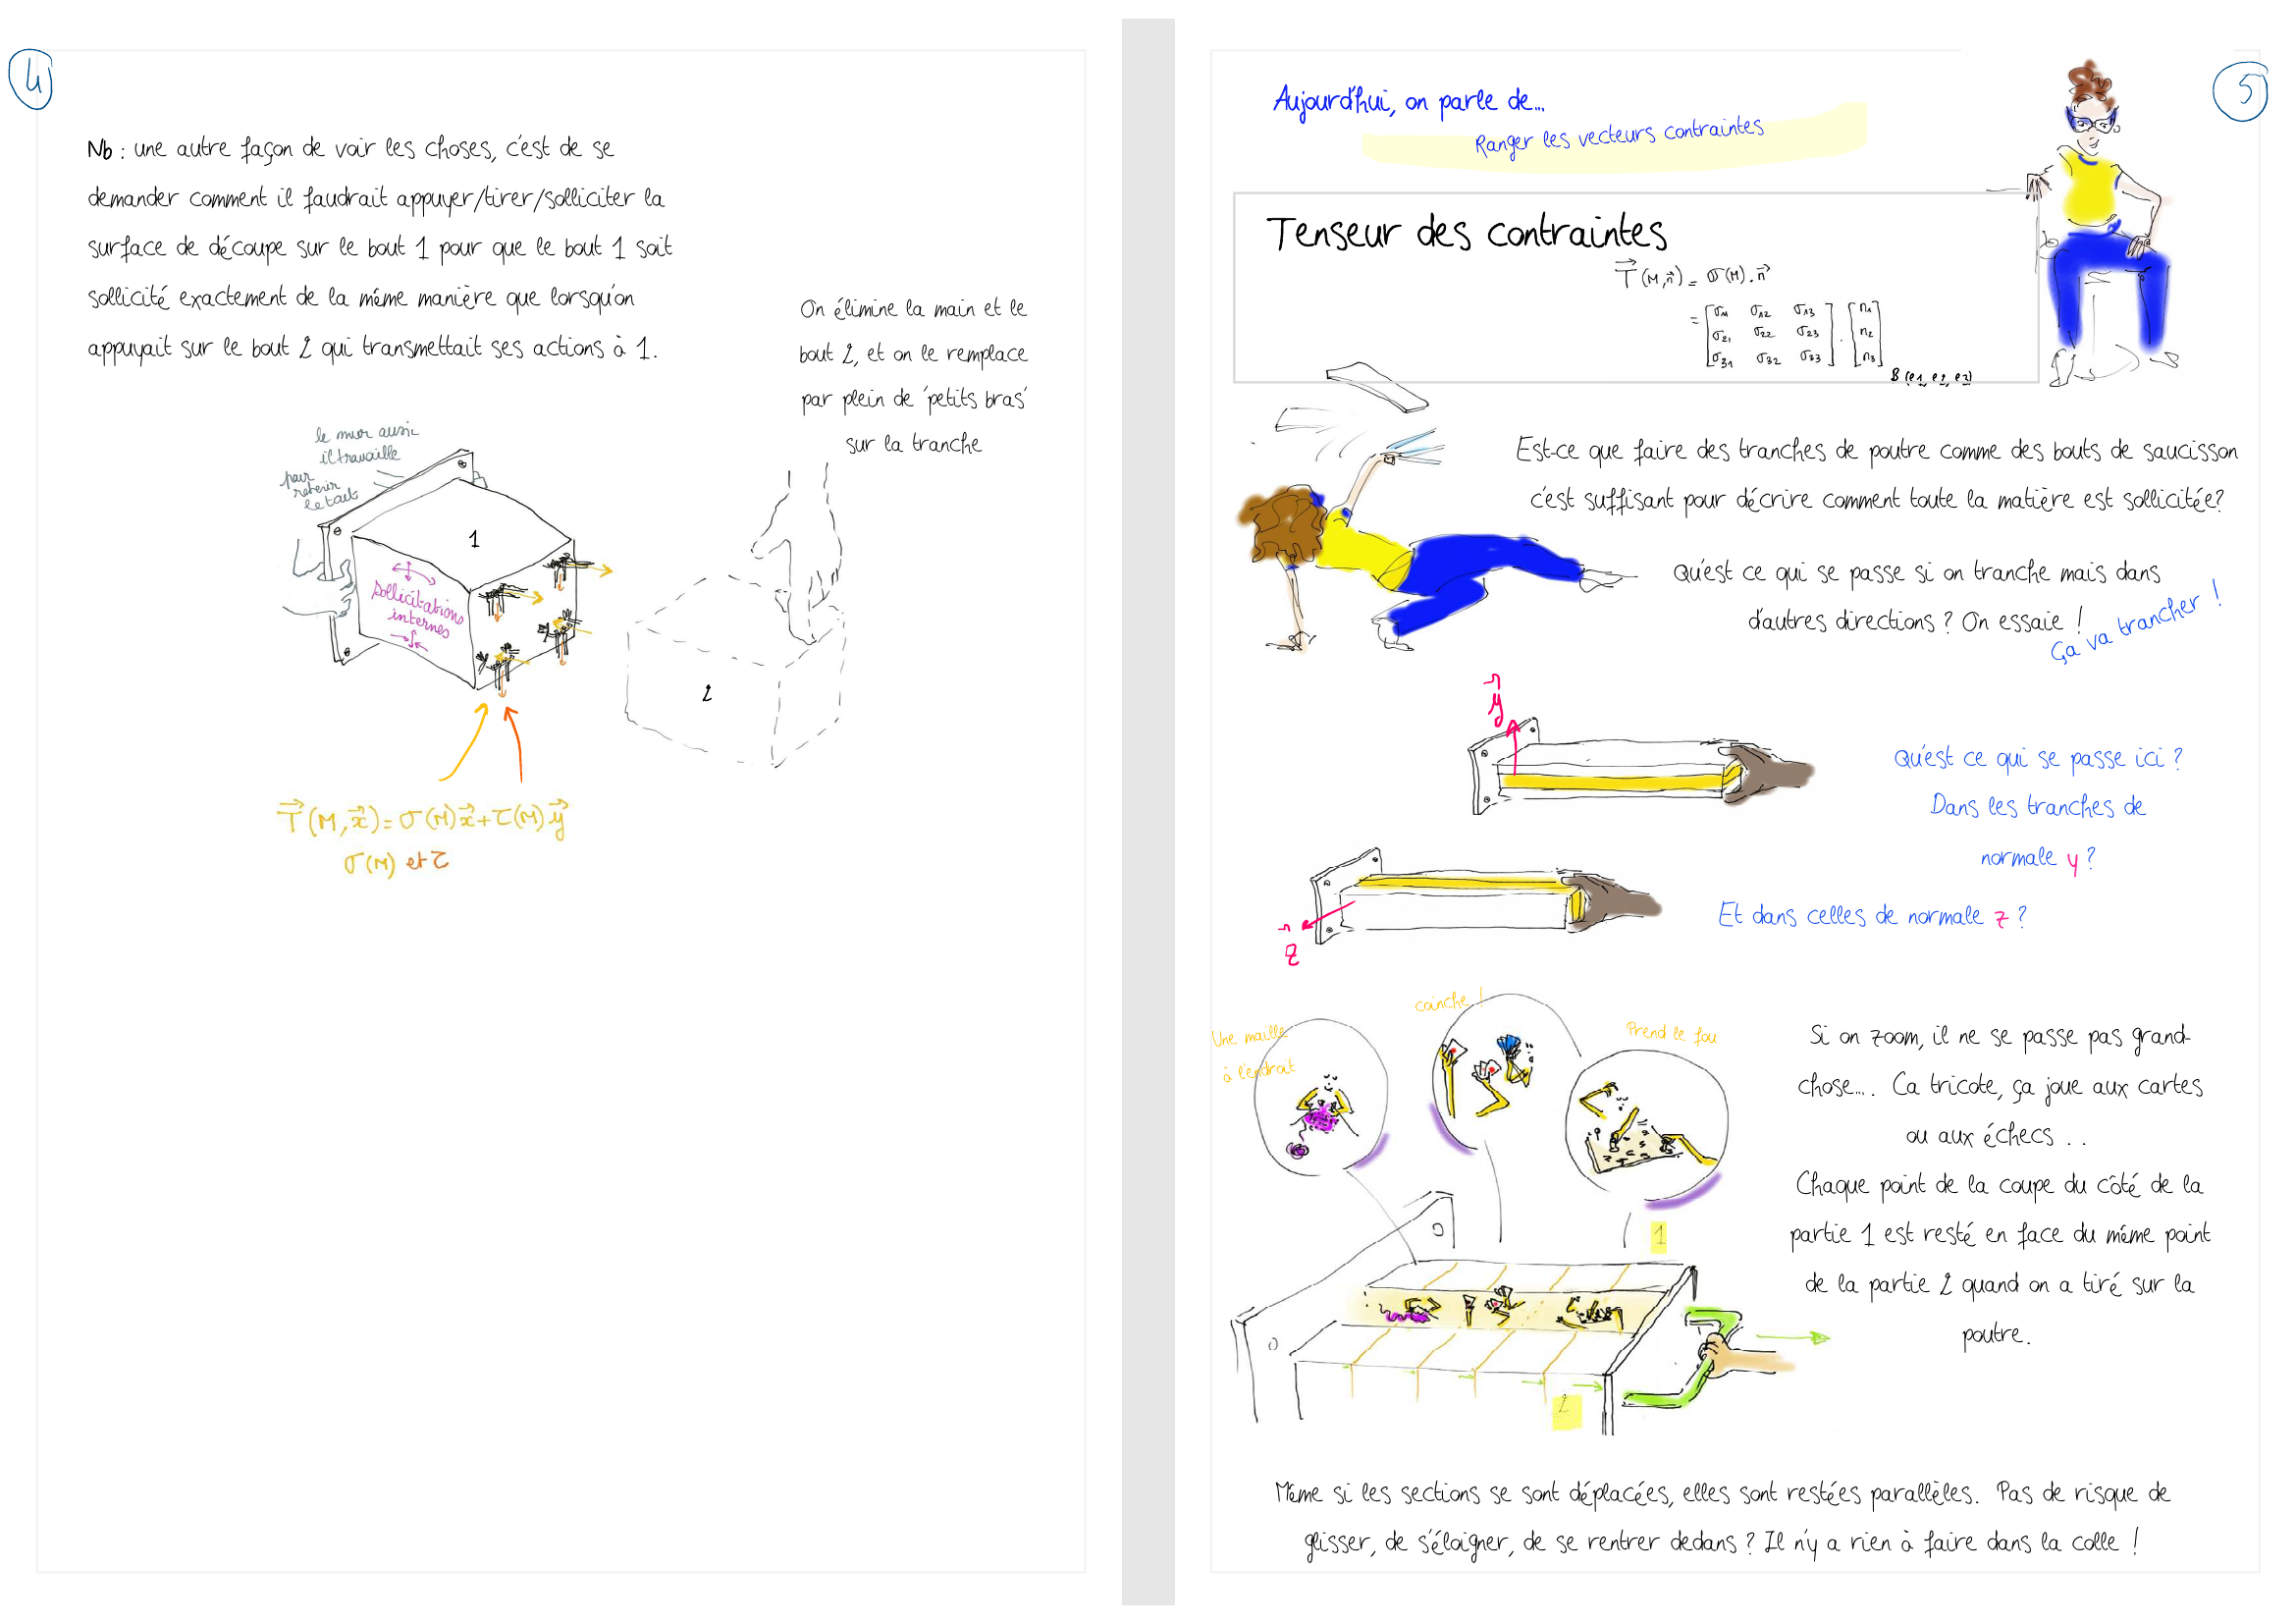 4
Nb : une autre façon de voir les choses, c'est de se
demander comment il faudrait appuyer/tirer/solliciter la
surface de découpe sur le bout 1 pour que le bout 1 soit
sollicité exactement de la même manière que lorsqu'on
appuyait sur le bout 2 qui transmettait ses actions à 1.
On élimine la main et le
bout 2, et on le remplace
par plein de 'petits bras'
sur la tranche
le mur aussi
il travaille
pour
retenir
le tout
1
Sollicitations
internes
2
T⃗(M,x⃗)=σ(M)x⃗+τ(M)y⃗
σ(M) et τ
5
Aujourd'hui, on parle de...
Ranger les vecteurs contraintes
Tenseur des contraintes
T⃗(M,n⃗) = σ(M).n⃗
= [σ11 σ12 σ13] . [n1]
[σ21 σ22 σ23] [n2]
[σ31 σ32 σ33] [n3]
B (e1, e2, e3)
Est-ce que faire des tranches de poutre comme des bouts de saucisson
c'est suffisant pour décrire comment toute la matière est sollicitée?
Qu'est ce qui se passe si on tranche mais dans
d'autres directions ? On essaie !
Ça va trancher !
y⃗
Qu'est ce qui se passe ici ?
Dans les tranches de
normale y ?
z⃗
Et dans celles de normale z ?
Une maille
à l'endroit
coinche !
Prend le fou
Si on zoom, il ne se passe pas grand-
chose.... Ca tricote, ça joue aux cartes
ou aux échecs . .
Chaque point de la coupe du côté de la
partie 1 est resté en face du même point
de la partie 2 quand on a tiré sur la
poutre.
1
2
Même si les sections se sont déplacées, elles sont restées parallèles. Pas de risque de
glisser, de s'éloigner, de se rentrer dedans ? Il n'y a rien à faire dans la colle !